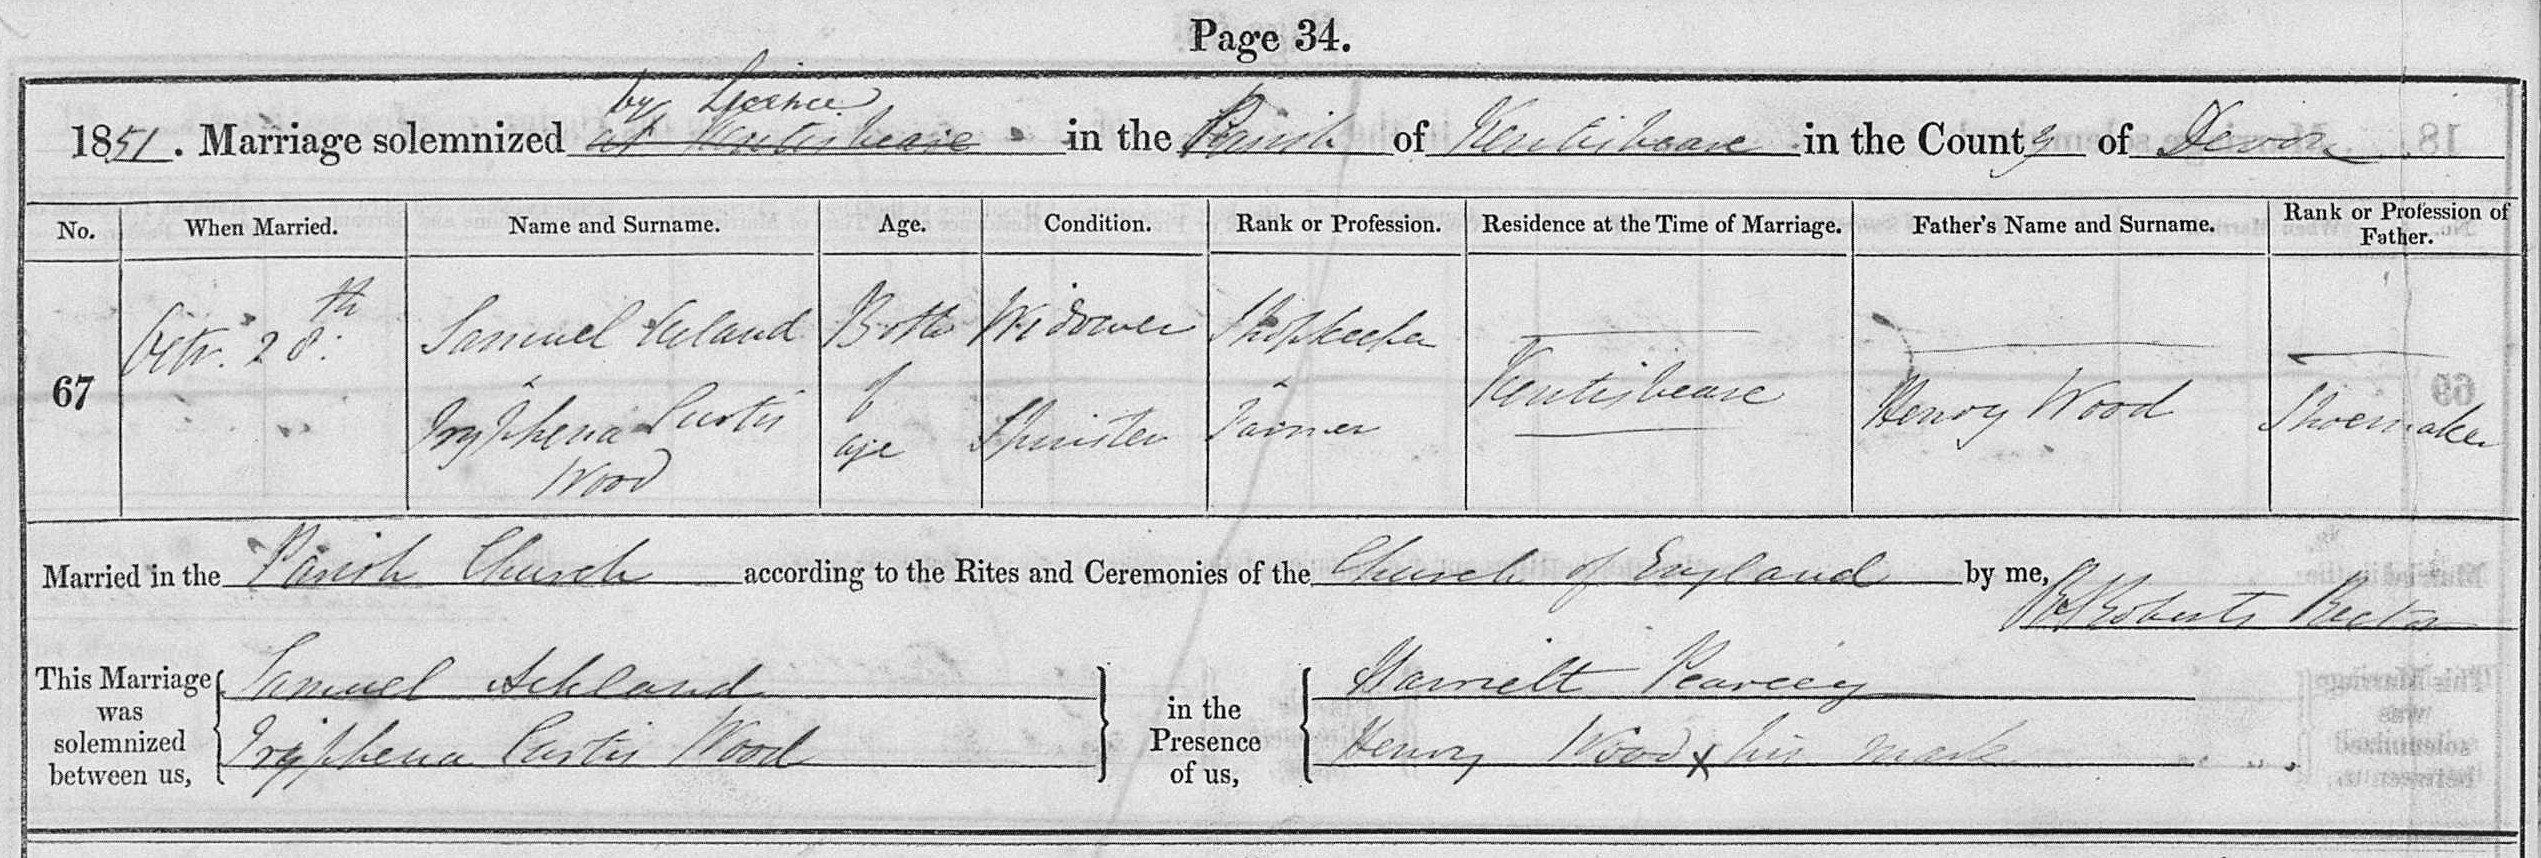 Page 34.
by Licence
1851. Marriage solemnized at Kentisbeare in the Parish of Kentisbeare in the County of Devon
No. When Married. Name and Surname. Age. Condition. Rank or Profession. Residence at the Time of Marriage. Father's Name and Surname. Rank or Profession of Father.
67 Octr. 28th Samuel Acland Both Widower Shopkeeper
Tryphena Curtis of Spinster Farmer Kentisbeare Henry Wood Shoemaker
Wood age
Married in the Parish Church according to the Rites and Ceremonies of the Church of England by me,
Roberts Rector
This Marriage was solemnized between us, Samuel Ackland in the Presence of us, Harriett Pearcey
Tryphena Curtis Wood Henry Wood x his mark